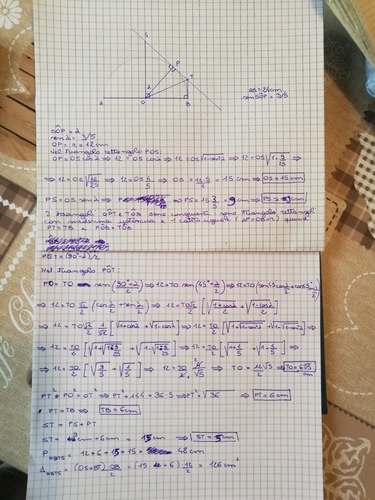 S
P
T
α
A
O
B
AB = 24 cm
sen SÔP = 3/5
SÔP = α
sen α = 3/5
OP = r = 12 cm
Nel triangolo rettangolo POS:
OP = OS cos α ⇒ 12 = OS cos α ⇒ 12 = OS √1-sen²α ⇒ 12 = OS √1-9/25 ⇒
⇒ 12 = OS √16/25 ⇒ 12 = OS 4/5 ⇒ OS = 12·5/4 = 15 cm ⇒ OS = 15 cm
PS = OS sen α ⇒ PS = 15 3/5 = 9 cm ⇒ PS = 9 cm
I triangoli OPT e TOB sono congruenti sono triangolo rettangoli
con medesima ipotenusa e 1 cateto uguale (PO = OB = r) quindi
PT = TB e PÔT = TÔB
PÔT = (90°-α)/2
Nel triangolo PÔT:
PO = TO sen (90°+α/2) ⇒ 12 = TO sen (45°+α/2) ⇒ 12 = TO (sen45cosα/2+cos45senα/2)
⇒ 12 = TO √2/2 (cos α/2 + sen α/2) ⇒ 12 = TO √2/2 [√1+cosα/2 + √1-cosα/2]
⇒ 12 = TO √2/2 1/√2 [√1+cosα + √1-cosα] ⇒ 12 = TO/2 [√1+√1-sen²α + √1-√1-sen²α] ⇒
⇒ 12 = TO/2 [√1+√16/25 + √1-√16/25] ⇒ 12 = TO/2 [√1+4/5 + √1-4/5] ⇒
⇒ 12 = TO/2 [√9/5 + √1/5] ⇒ 12 = TO/2 4/√5 ⇒ TO = 12√5/2 ⇒ TO = 6√5 cm
PT² + PO² = OT² ⇒ PT² + 144 = 36·5 ⇒ PT = √36 ⇒ PT = 6 cm
PT = TB ⇒ TB = 6 cm
ST = PS + PT
ST = 9 cm + 6 cm = 15 cm ⇒ ST = 15 cm
P OBTS = 12 + 6 + 15 + 15 = 48 cm
A OBTS = (OS + BT) OB/2 = (15 + 6) 12/2 = 126 cm²